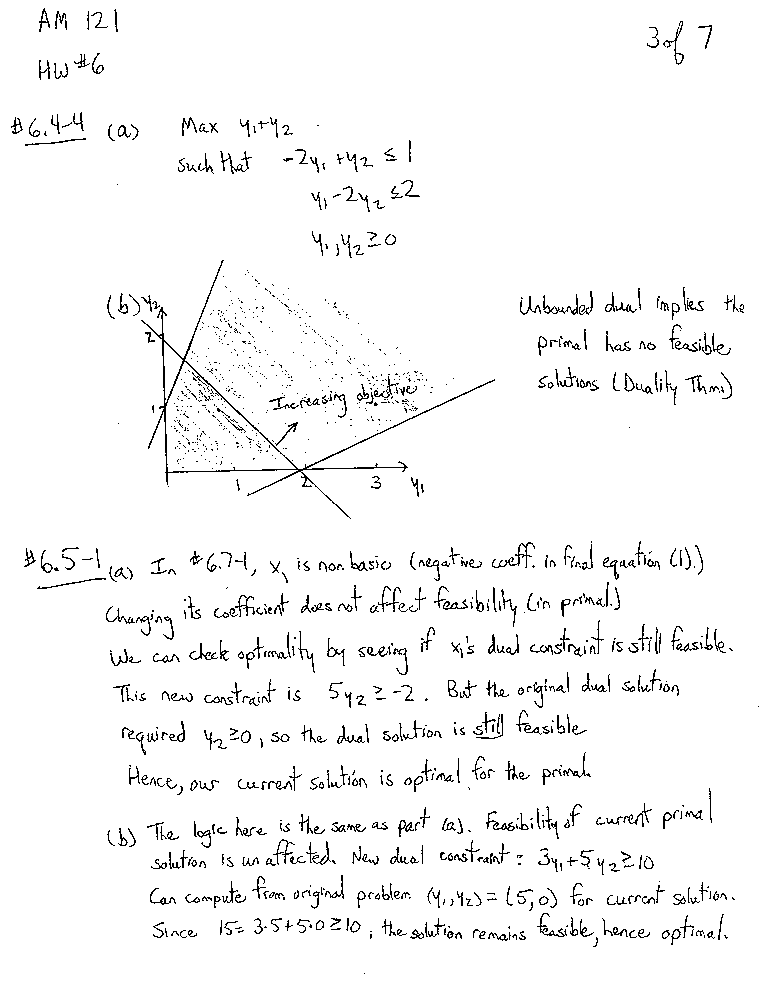 AM 121
3 of 7
HW #6
#6.4-4 (a) Max y₁+y₂
such that -2y₁ + y₂ ≤ 1
y₁ - 2y₂ ≤ 2
y₁, y₂ ≥ 0
(b) y₂
2
1
Increasing objective
1 2 3 y₁
Unbounded dual implies the
primal has no feasible
solutions (Duality Thm.)
#6.5-1 (a) In #6.7-1, x₁ is nonbasic (negative coeff. in final equation (1).)
Changing its coefficient does not affect feasibility (in primal.)
We can check optimality by seeing if x₁'s dual constraint is still feasible.
This new constraint is 5y₂ ≥ -2. But the original dual solution
required y₂ ≥ 0, so the dual solution is still feasible
Hence, our current solution is optimal for the primal.
(b) The logic here is the same as part (a). Feasibility of current primal
solution is unaffected. New dual constraint: 3y₁ + 5y₂ ≥ 10
Can compute from original problem (y₁, y₂) = (5, 0) for current solution.
Since 15 = 3·5 + 5·0 ≥ 10, the solution remains feasible, hence optimal.